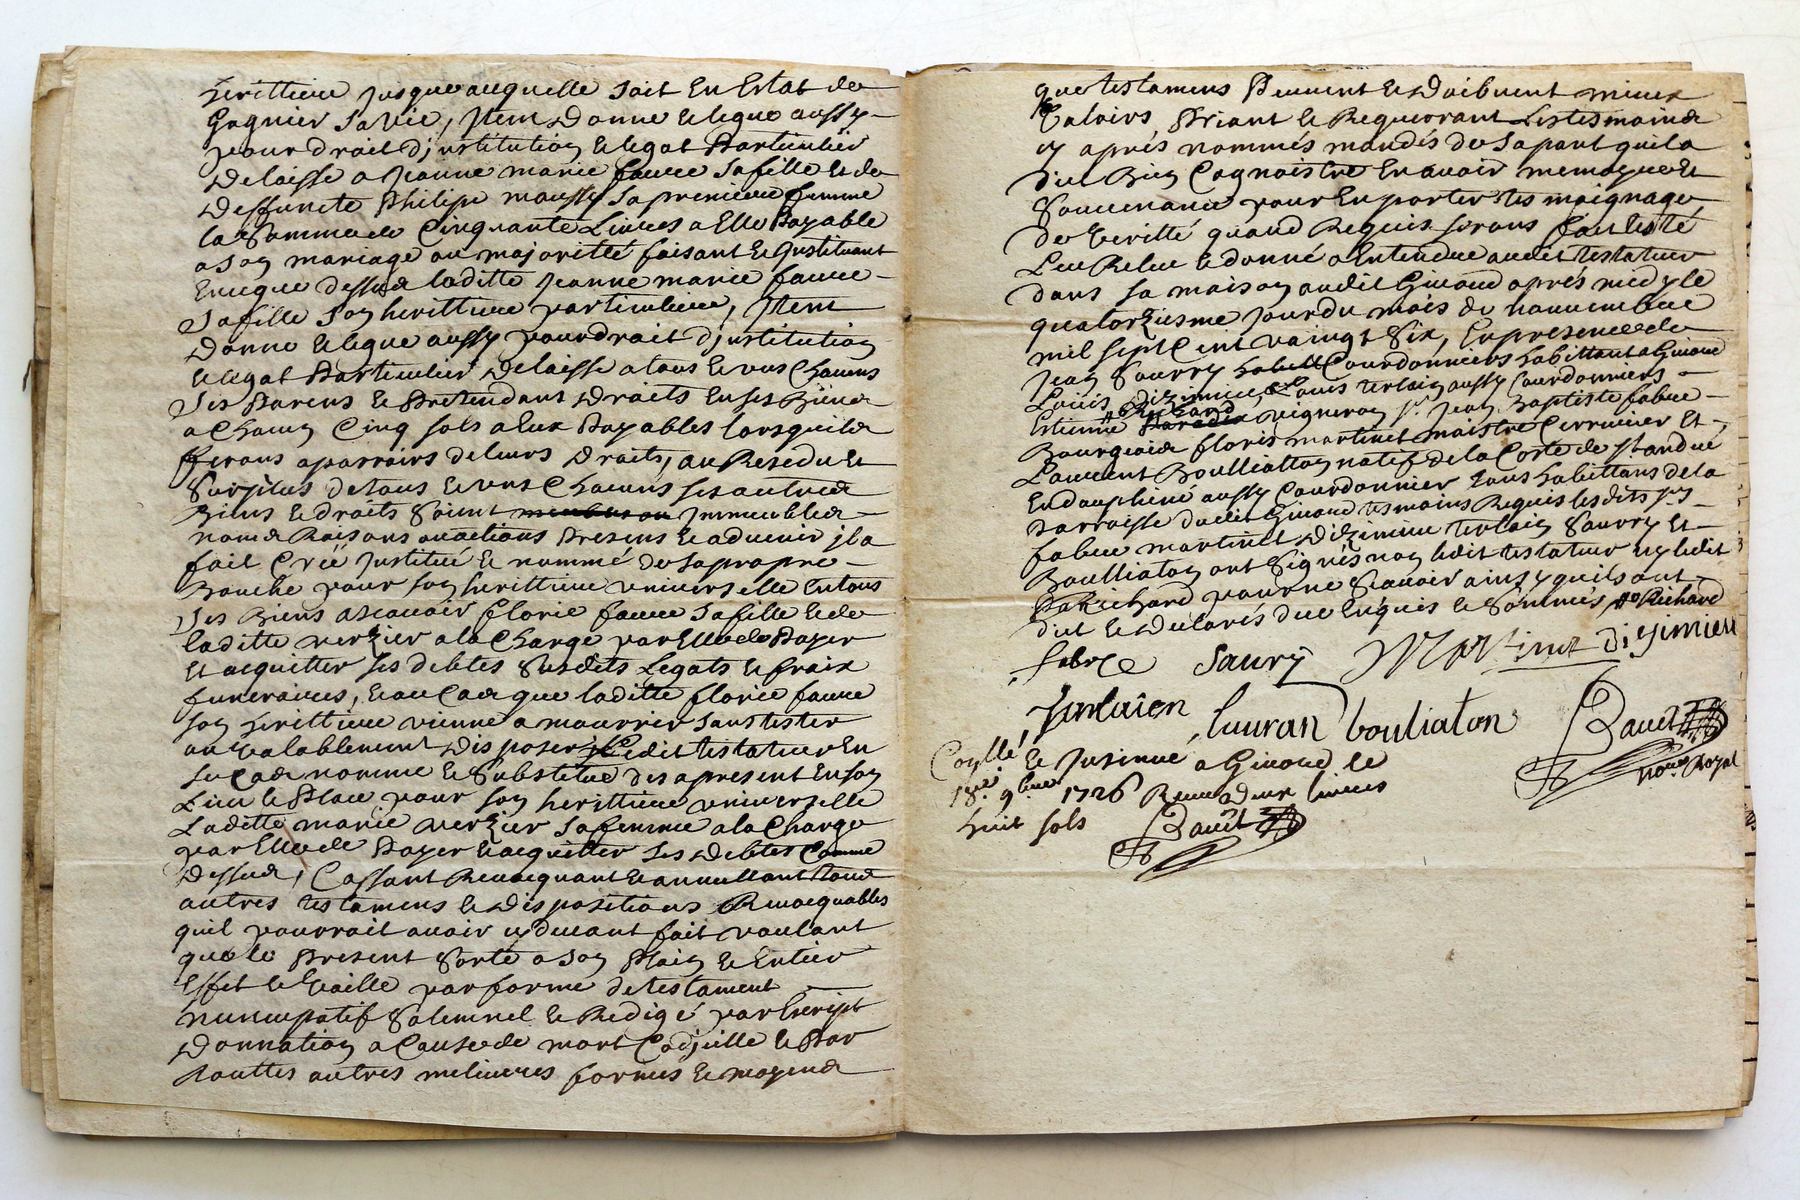 herittiere jusques aequelle soit En Estat de
Gagnier sa vie, Item Donne & legue aussy
pour droit djnstitution & legat Particulier
Delaisse a jeanne marie faure sa fille & de
Deffuncte Philipe maussy sa premiere femme
la Somme de Cinquante Livres a Elle Payable
a son mariage ou majoritté faisant & Instituant
En ce que dessus laditte jeanne marie faure
sa fille son herittiere particuliere, Item
Donne & legue aussy pour droit djnstitution
& legat Particulier Delaisse a tous & uns Chacuns
ses Parens & Pretendans Droits En ses Biens
a Chacun Cinq sols a Eux Payables lorsquils
fferons aparroirs de leurs Droits, au Residu &
Surplus de tous & uns Chacuns ses autres
Biens & droits Soient jmmeubles
noms Raisons ou actions Presens & advenir jl a
fait Créé jnstitué & nommé de sa propre
Bouche pour son herittiere universelle En tous
ses Biens a scavoir florie faure sa fille & de
laditte verzier a la Charge par Elle de Payer
Et acquitter ses debtes susdits Legats & fraix
funeraires, & au Cas que laditte florie faure
son herittiere vienne a mourrir sans tester
ou valablement Disposer ledit testateur En
ce Cas nomme & Substitue des apresent En son
Lieu & Place pour son herittiere universelle
Laditte marie verzier sa femme a la Charge
par Elle de Payer & acquitter ses Debtes Comme
Dessus, Cassant Revocquant & annullant tous
autres testamens & Dispositions Revocquables
quil pourroit avoir cy devant fait voulant
que le Present Sorte a son Plain & Entier
Effet & Vaille par forme de testament
nuncupatif Solemnel & Redigé par Escript
Donnation a Cause de mort Codjcille & Par
touttes autres melieures formes & moyens
que testamens Peuvent & Doibvent mieux
Valoirs Priant & Requerrant Les tesmoins
cy aprés nommés mandés de sa part quil a
dit Bien Cognoistre En avoir memoyre Et
Souvenance pour En porter tesmoignage
de Veritté quand Requis serons fait testé
Leu Releu & donné a Entendre audit testateur
dans sa maison audit Givord aprés midy le
quatorziesme jour du mois de novembre
mil sept Cent vaingt Six, En presence de
jean Saurry Courdonniers habittant a Givord
Louis Dizimieu Louis terlain aussy Courdonniers
Estienne Richard vigneron sr jean Baptiste fabre
Bourgeois floris martinet maistre Cerrurier Et
Laurent Boulliatton natif de la Cotte de st andré
En dauphiné aussy Courdonnier tous habittans de la
Parroisse dudit Givord tesmoins Requis lesdits srs
fabre martinet Dizimieu terlain Saurry Et
Boulliaton ont Signés non ledit testateur ny ledit
Richard pour ne Scavoir ainsy quils ont
dict & Declarés de ce Enquis & Sommés Richard
fabre Saury Martinet Disimieu
terlaien lauran bouliaton Bauet
nore Royal
Coyllé & Insinué a Givord le
18e 9bre 1726 Receu deux livres
huit sols Bauet